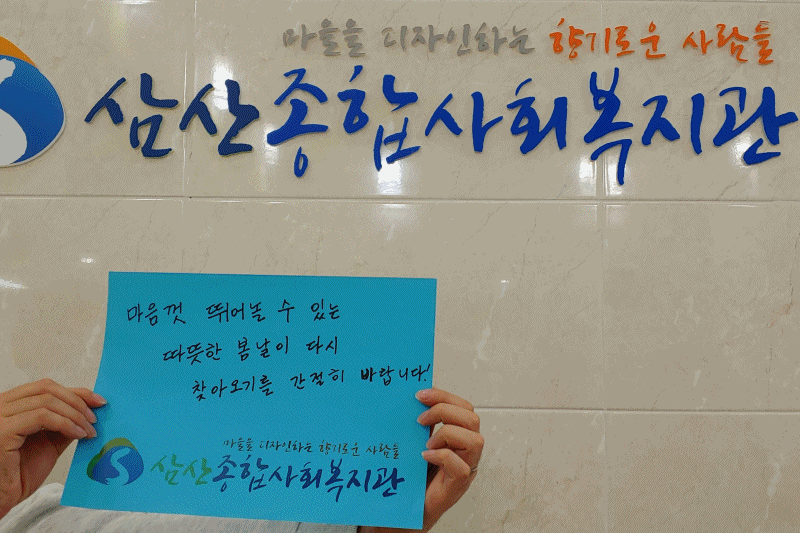 마을을 디자인하는 향기로운 사람들
삼산종합사회복지관
마음껏 뛰어놀 수 있는
따뜻한 봄날이 다시
찾아오기를 간절히 바랍니다!
마을을 디자인하는 향기로운 사람들
삼산종합사회복지관